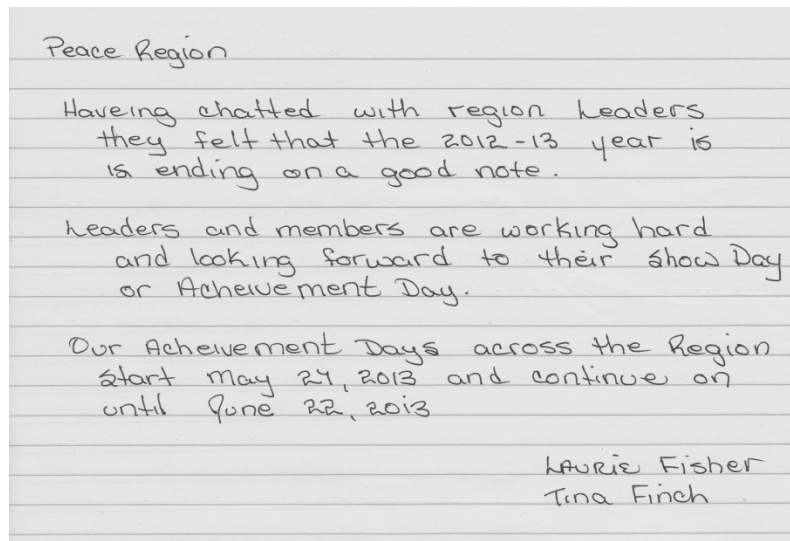 Peace Region
Haveing chatted with region Leaders
they felt that the 2012-13 year is
is ending on a good note.
Leaders and members are working hard
and looking forward to their Show Day
or Acheivement Day.
Our Acheivement Days across the Region
start May 24, 2013 and continue on
until June 22, 2013
Laurie Fisher
Tina Finch